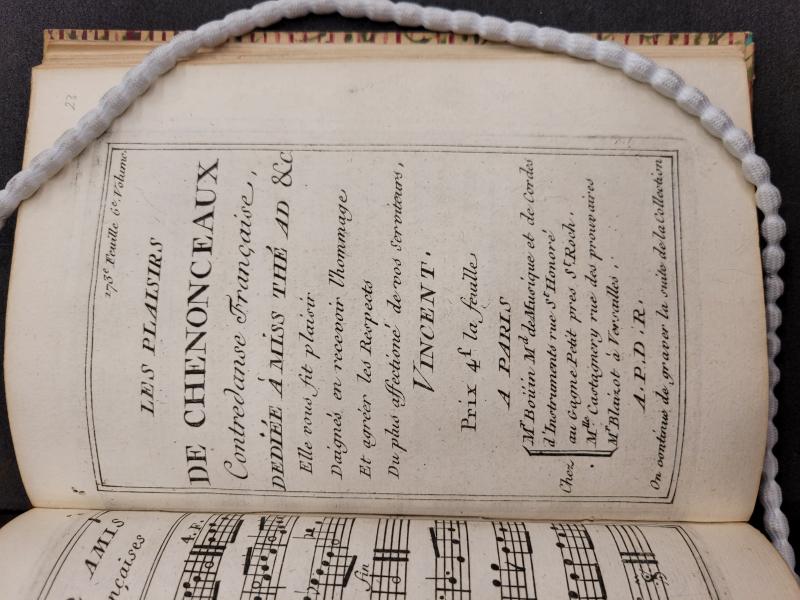 23
173e Feuille 6e. Volume.
LES PLAISIRS
DE CHENONCEAUX
Contredanse Française,
DEDIÉE A MISS THÉ AD &c
Elle vous fit plaisir
Daignés en recevoir l'hommage
Et agréer les Respects
Du plus affectioné de vos serviteurs,
VINCENT.
Prix 4f la feuille
A PARIS
Chez
Mr Boüin Md de Musique et de Cordes
d'Instruments rue St Honoré
au Gagne Petit pres St Roch.
Mlle Castagnery rue des prouvaires
Mr Blaizot à Versailles.
A. P. D. R.
On continue de graver la suite de la Collection
AMIS
nçaises
4. F.
fin